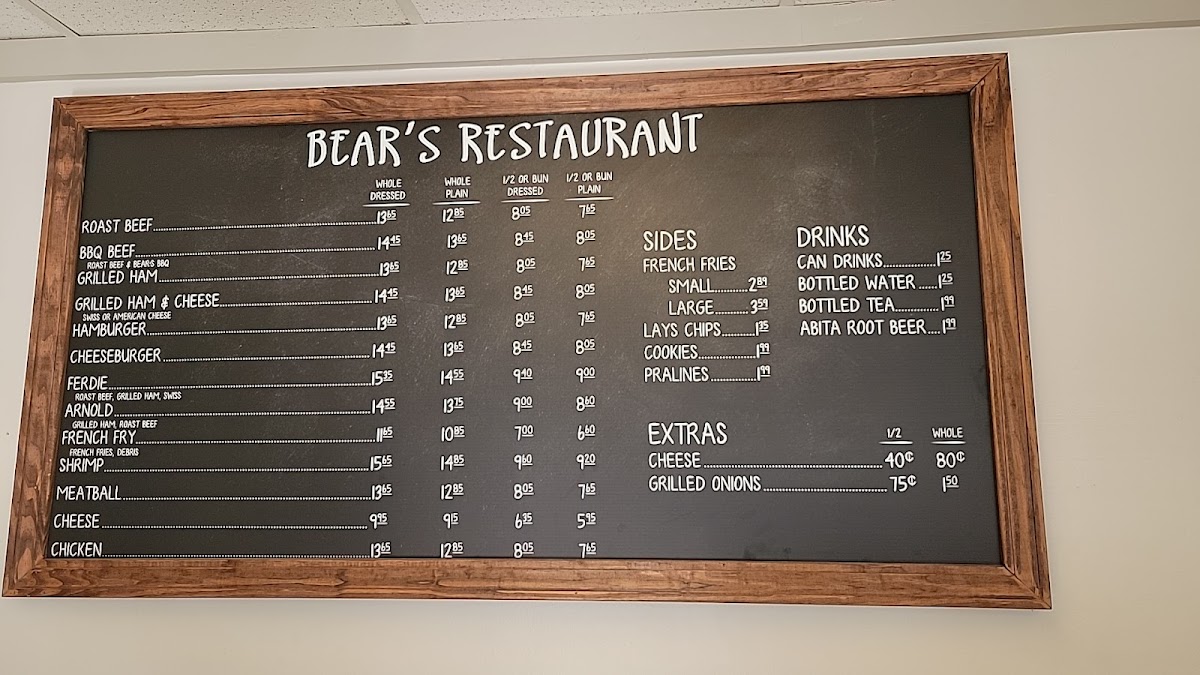 BEAR'S RESTAURANT
WHOLE DRESSED WHOLE PLAIN 1/2 OR BUN DRESSED 1/2 OR BUN PLAIN
ROAST BEEF 13.65 12.85 8.05 7.65
BBQ BEEF 14.45 13.65 8.45 8.05
ROAST BEEF & BEAR'S BBQ
GRILLED HAM 13.65 12.85 8.05 7.65
GRILLED HAM & CHEESE 14.45 13.65 8.45 8.05
SWISS OR AMERICAN CHEESE
HAMBURGER 13.65 12.85 8.05 7.65
CHEESEBURGER 14.45 13.65 8.45 8.05
FERDIE 15.35 14.55 9.40 9.00
ROAST BEEF, GRILLED HAM, SWISS
ARNOLD 14.55 13.75 9.00 8.60
GRILLED HAM, ROAST BEEF
FRENCH FRY 11.65 10.85 7.00 6.60
FRENCH FRIES, DEBRIS
SHRIMP 15.65 14.85 9.60 9.20
MEATBALL 13.65 12.85 8.05 7.65
CHEESE 9.95 9.15 6.35 5.95
CHICKEN 13.65 12.85 8.05 7.65
SIDES
FRENCH FRIES
SMALL 2.89
LARGE 3.59
LAYS CHIPS 1.35
COOKIES 1.99
PRALINES 1.99
DRINKS
CAN DRINKS 1.25
BOTTLED WATER 1.25
BOTTLED TEA 1.99
ABITA ROOT BEER 1.99
EXTRAS 1/2 WHOLE
CHEESE 40¢ 80¢
GRILLED ONIONS 75¢ 1.50